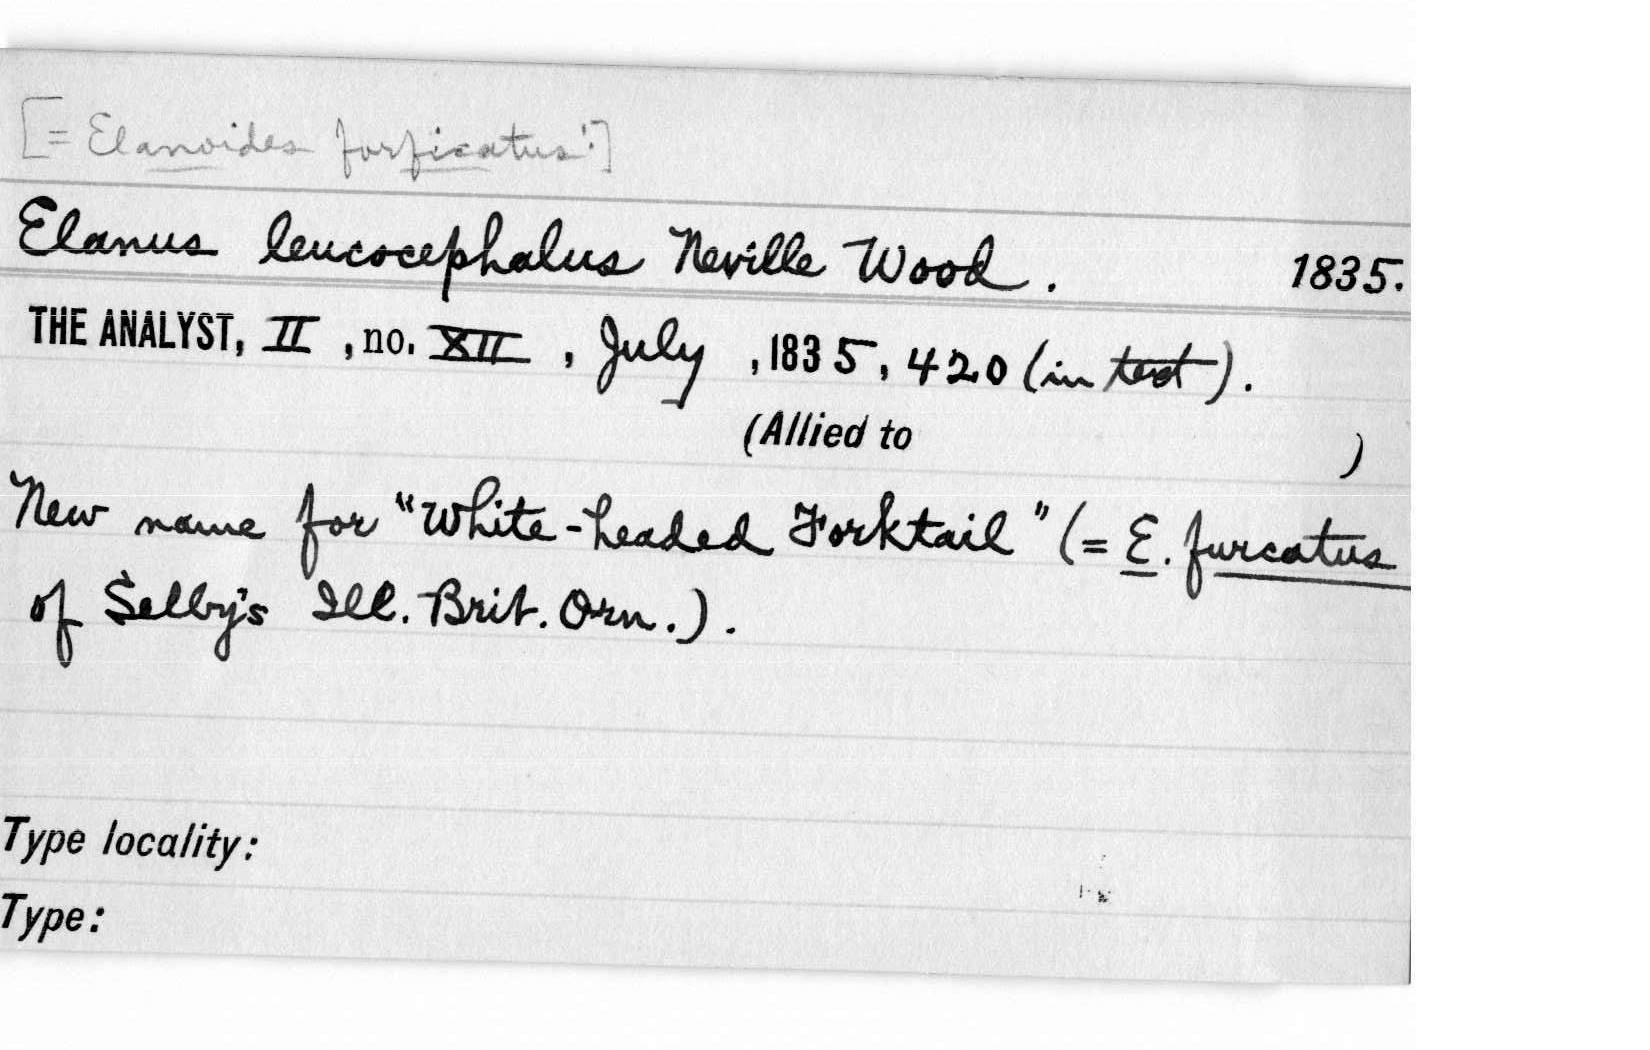 [= Elanoides forficatus!]
Elanus leucocephalus Neville Wood. 1835.
THE ANALYST, II, no. XII, July, 1835, 420 (in text).
(Allied to )
New name for "White-headed Forktail" (= E. furcatus
of Selby's Ill. Brit. Orn.).
Type locality:
Type: